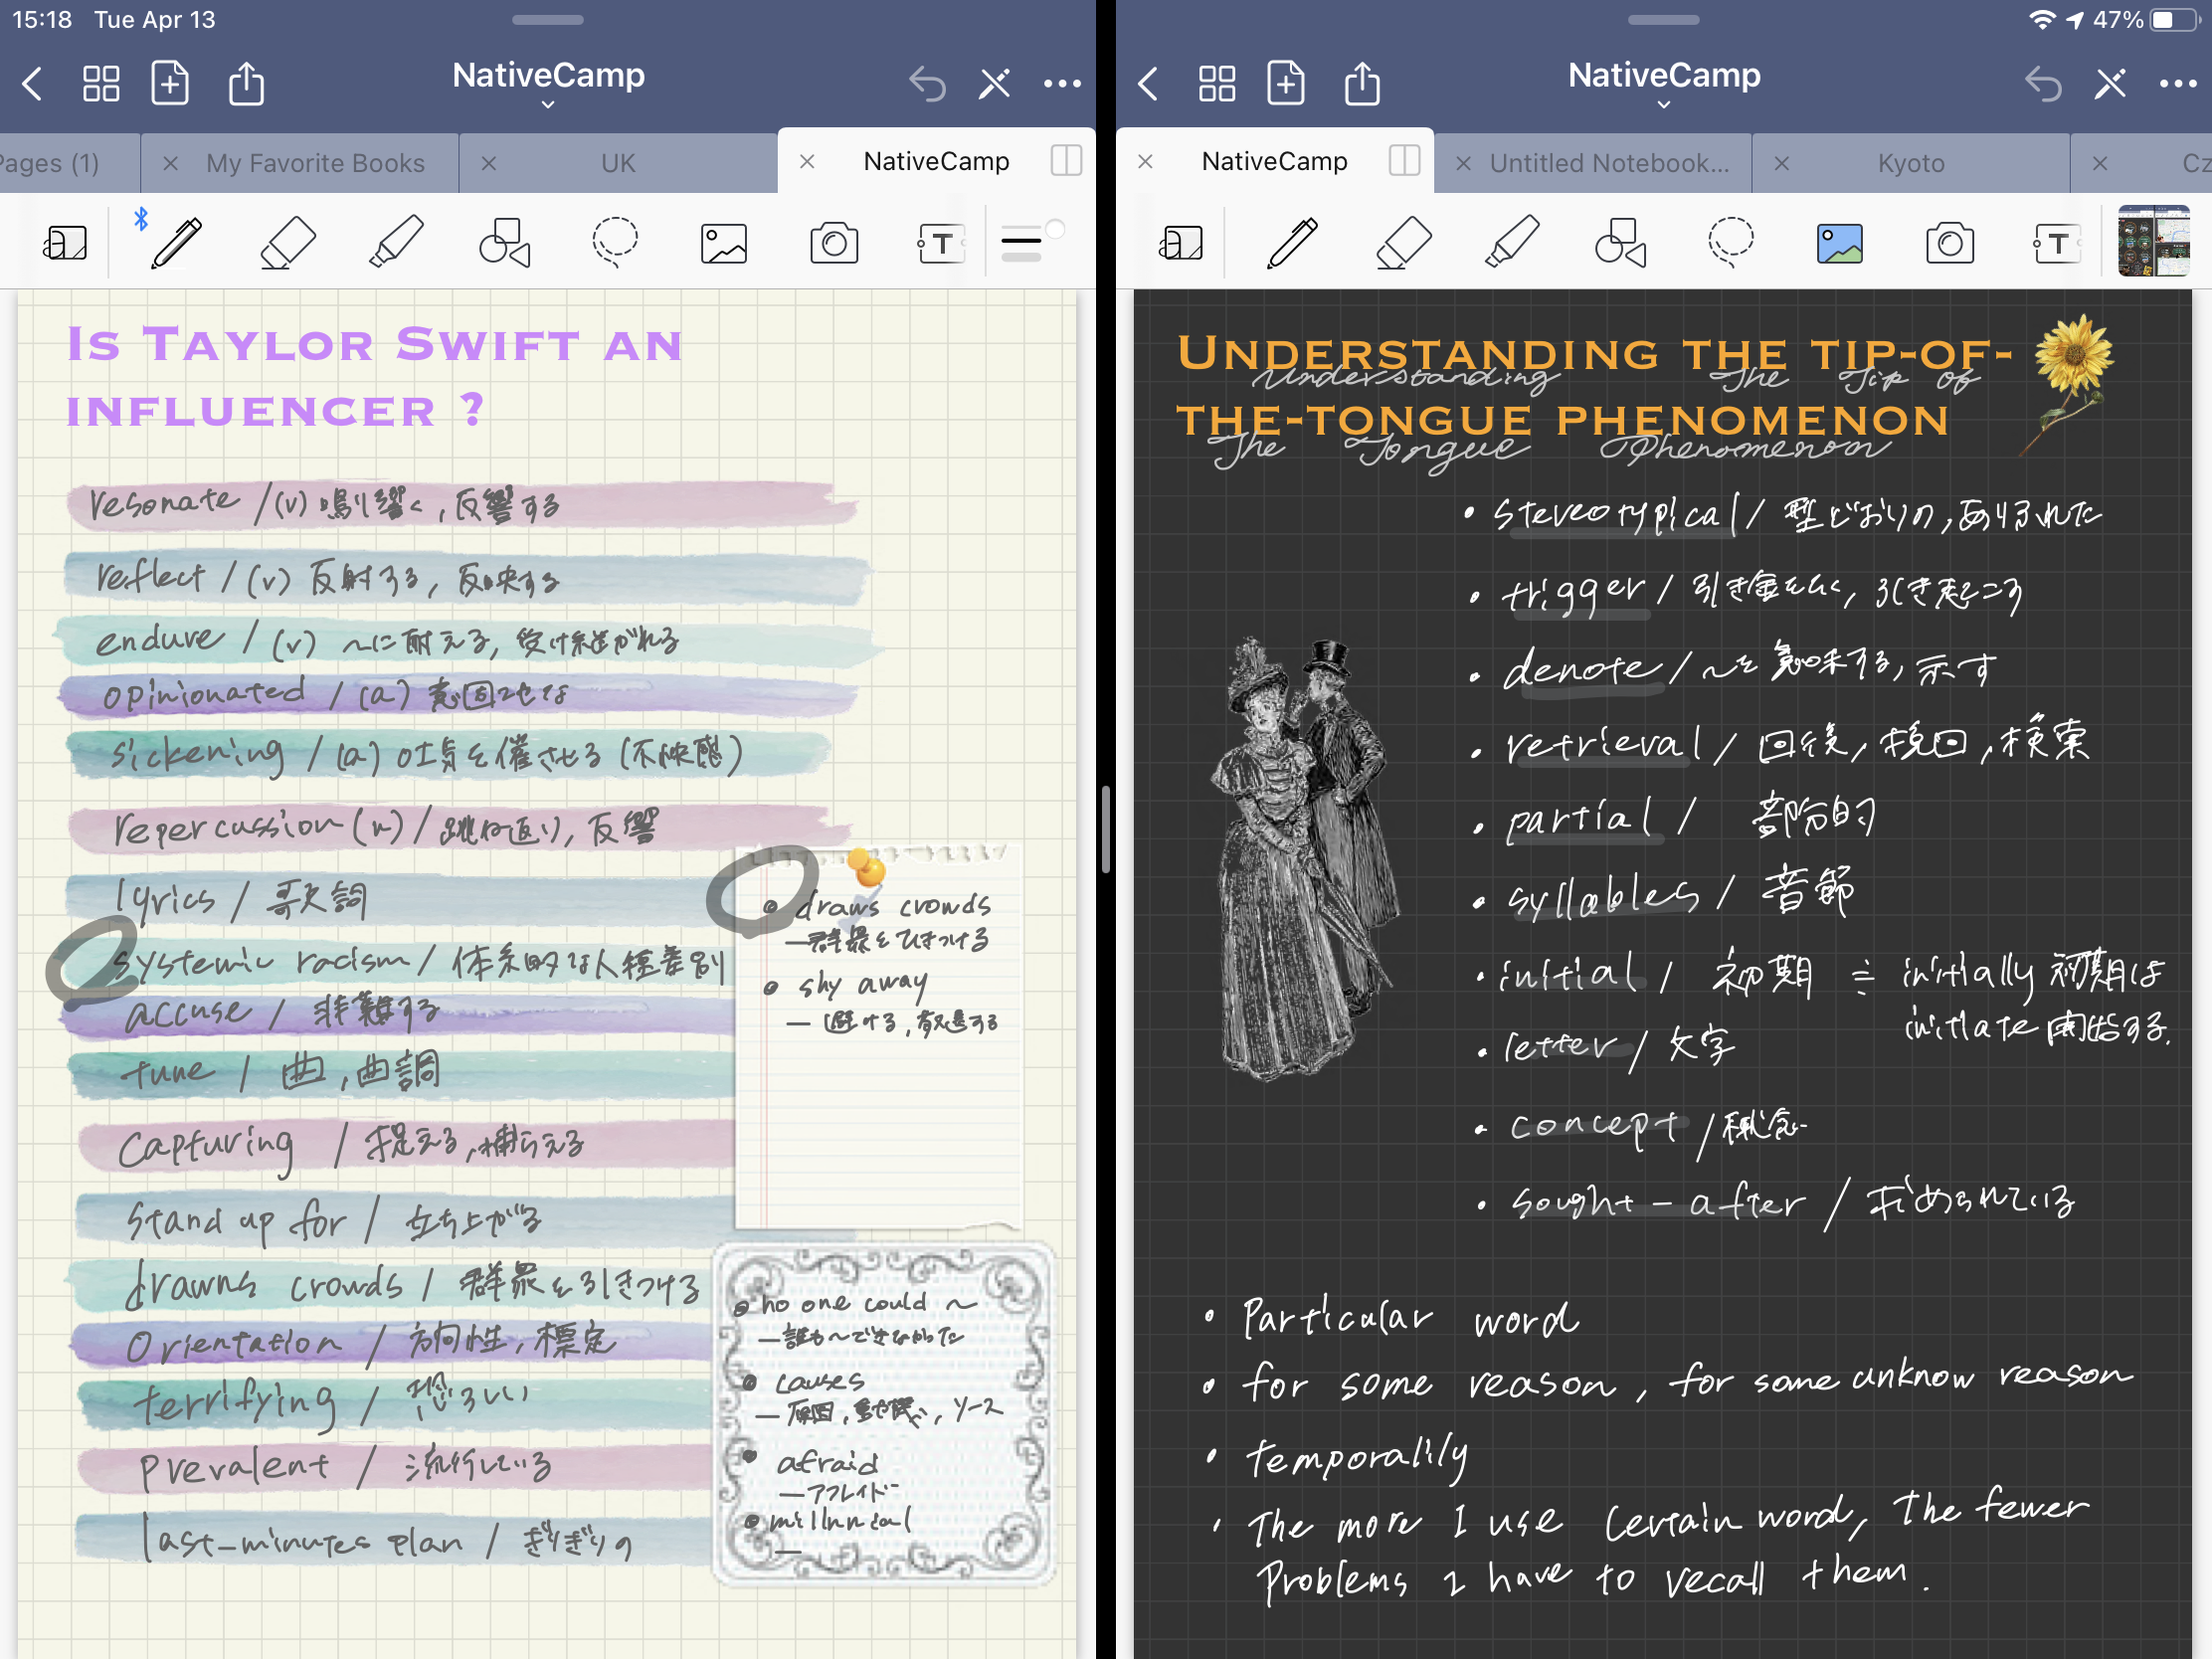 15:18 Tue Apr 13
47%
NativeCamp
Pages (1)
My Favorite Books
UK
NativeCamp
IS TAYLOR SWIFT AN
INFLUENCER ?
resonate / (v) 鳴り響く, 反響する
reflect / (v) 反射する, 反映する
endure / (v) 〜に耐える, 受け継がれる
opinionated / (a) 意固地な
sickening / (a) 吐気を催させる (不快感)
repercussion (n) / 跳ね返り, 反響
lyrics / 歌詞
systemic racism / 体系的な人種差別
accuse / 非難する
tune / 曲, 曲調
capturing / 捉える, 捕らえる
stand up for / 立ち上がる
drawns crowds / 群衆を引きつける
Orientation / 方向性, 標定
terrifying / 恐ろしい
prevalent / 流行している
last-minutes plan / ぎりぎりの
draws crowds
—群衆をひきつける
shy away
— 避ける, 敬遠する
no one could 〜
—誰も〜できなかった
causes
— 原因, 動機, ソース
afraid
—アフレイド
millnnial
—
NativeCamp
NativeCamp
Untitled Notebook...
Kyoto
Cz
UNDERSTANDING THE TIP-OF-
Understanding The Tip of
THE-TONGUE PHENOMENON
The Tongue Phenomenon
• stereotypical / 型どおりの, ありふれた
• trigger / 引き金をひく, 引き起こす
• denote / 〜を意味する, 示す
• retrieval / 回復, 挽回, 検索
• partial / 部分的
• syllables / 音節
• initial / 初期 ≒ initially 初期は
initiate 開始する.
• letter / 文字
• concept / 概念
• sought-after / 求められている
• Particular word
• for some reason, for some unknow reason
• temporalily
• The more I use certain word, The fewer
Problems I have to recall them.